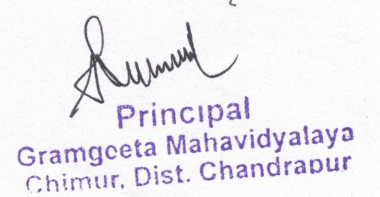 Principal
Gramgeeta Mahavidyalaya
Chimur, Dist. Chandrapur